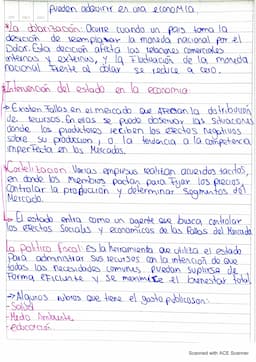 pueden adquirir en una economía
*La dolarización: Ocurre cuando un país toma la
decisión de reemplazar la moneda nacional por el
Dolar. Esta decisión afecta las relaciones comerciales
internas y externas, y la Fluctuación de la moneda
nacional Frente al dolar se reduce a cero.
*Intervención del estado en la economía
→ Existen Fallos en el mercado que afectan la distribución
de recursos. En ellos se puede observar las situaciones
donde los productores reciben los efectos negativos
sobre su producción, o la tendencia a la competencia
imperfecta en los Mercados.
*Cartelización: Varias empresas realizan acuerdos tacitos,
en donde los miembros pactan para Fijar los precios,
Controlar la producción y determinar segmentos del
Mercado.
→ El estado entra como un agente que busca controlar
los efectos Sociales y economicos de los Fallos del Mercado
La política fiscal: Es la herramienta que utiliza el estado
para administrar sus recursos con la intención de que
todas las necesidades comunes puedan suplirse de
Forma eficiente y se maximice el bienestar total
→ Algunos rubros que tiene el gasto público son:
- Salud
- Medio Ambiente
- educación
Scanned with ACE Scanner